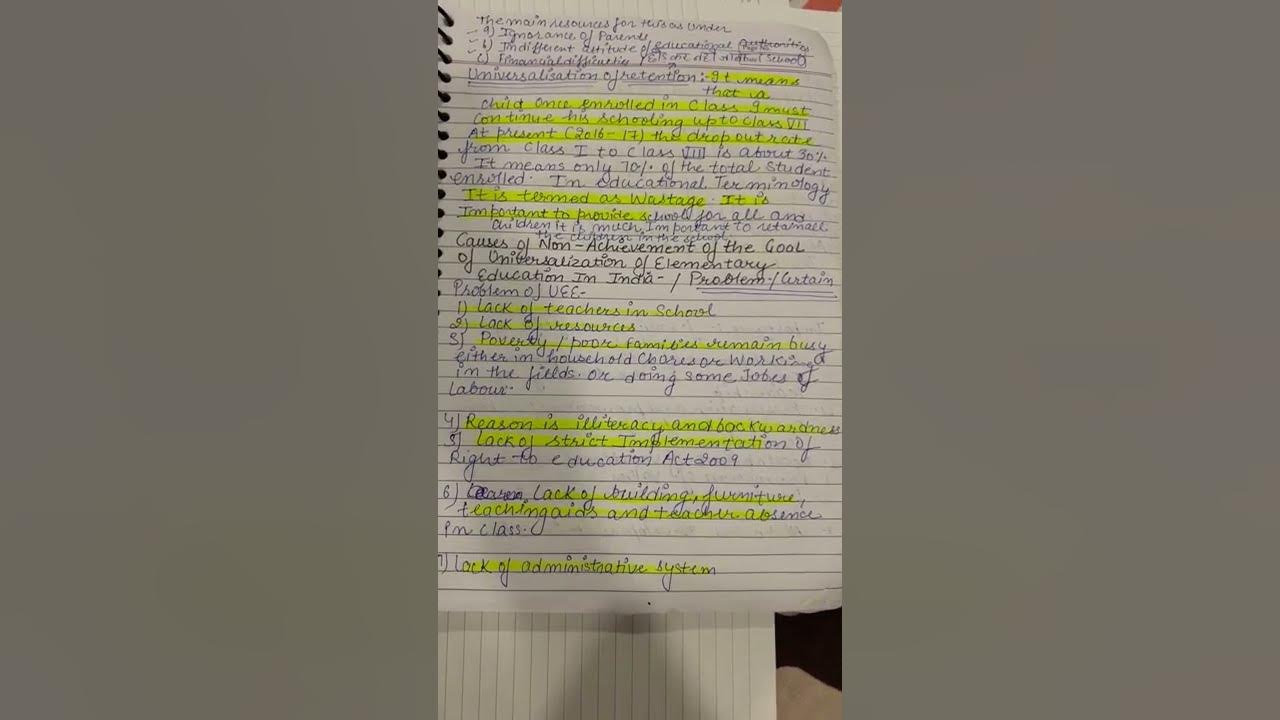 The main resources for this as under
a) Ignorance of Parents
b) Indifferent attitude of educational Authorities
c) Financial difficulties School)
Universalisation of retention :- It means
that a
child once enrolled in Class I must
continue his schooling upto Class VIII
At present (2016-17) the drop out rate
from Class I to Class VIII is about 30%.
It means only 70% of the total student
enrolled. In educational Terminology
It is termed as Wastage. It is
Important to provide school for all and
children it is much Important to retain all
the children in the school.
Causes of Non-Achievement of the Goal
of Universalization of Elementary
Education In India- / Problem / Certain
Problem of UEE-
1) Lack of teachers in School
2) Lack of resources.
3) Poverty / poor families remain busy
either in household Chores or Working
in the fields. or doing some Jobes of
Labour.
4) Reason is illiteracy and backwardness
5) Lack of strict Implementation of
Right to education Act 2009
6) Lack of building, furniture,
teaching aids and teacher absence
in class.
7) Lack of administrative system